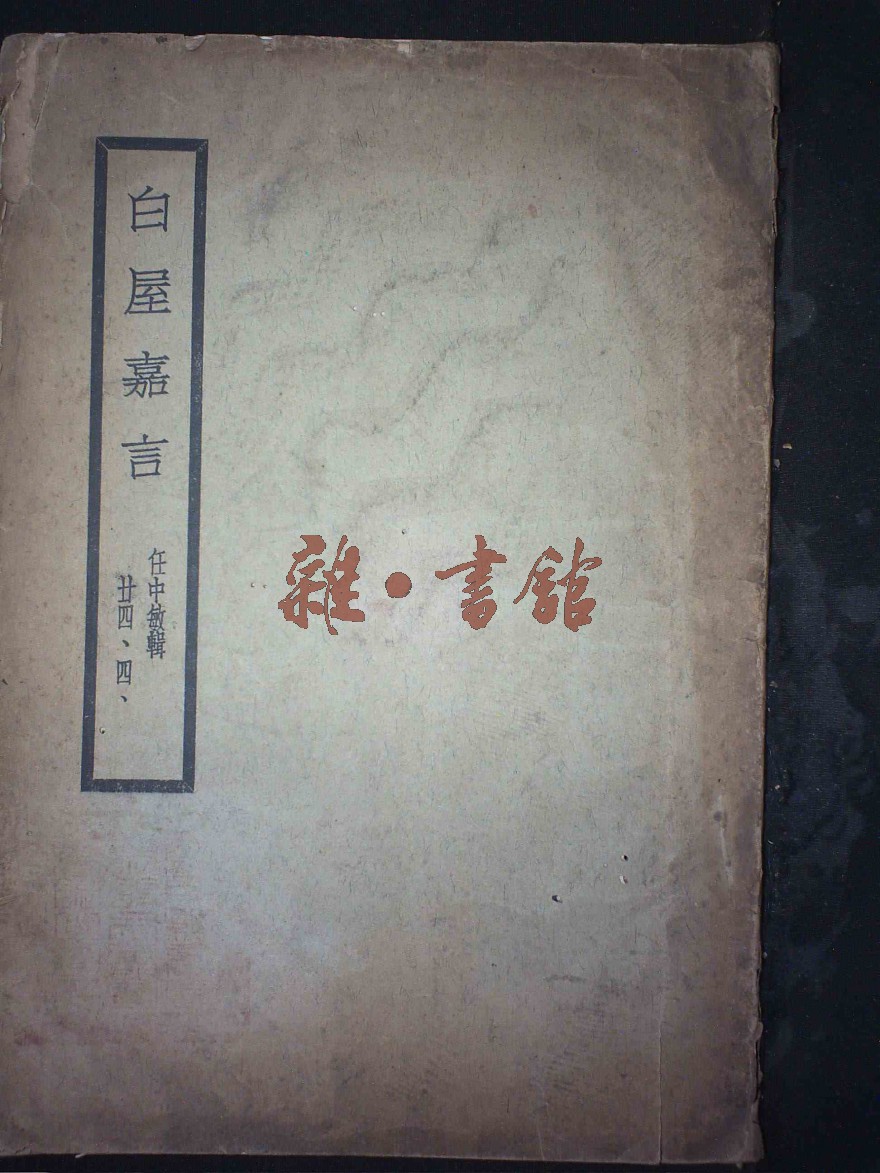 白屋嘉言
任中敏輯
廿四、四、
雜·書館